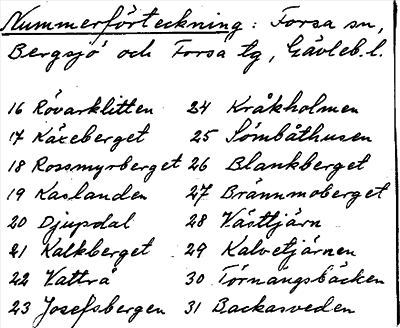 Nummerförteckning: Forsa sn,
Bergsjö och Forsa tg, Gävleb.l.
16 Rövarklitten
17 Käxeberget
18 Rossmyrberget
19 Kaslanden
20 Djupdal
21 Kalkberget
22 Vattrå
23 Josefsbergen
24 Kråkholmen
25 Sömbåthusen
26 Blankberget
27 Brännmoberget
28 Västtjärn
29 Kalvetjärnen
30 Törnangsbäcken
31 Backasveden